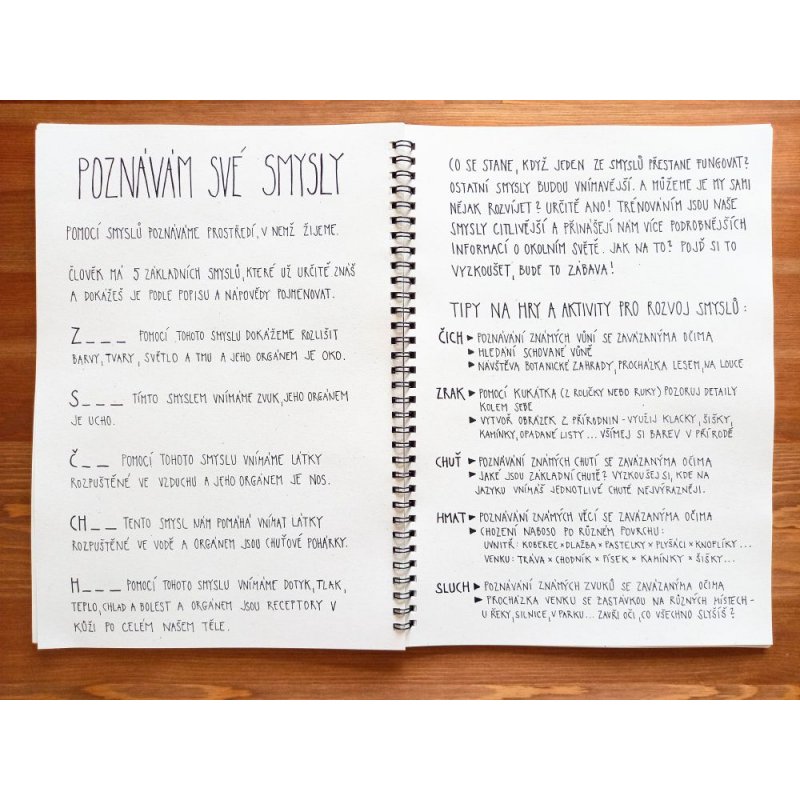 POZNÁVÁM SVÉ SMYSLY
POMOCÍ SMYSLŮ POZNÁVÁME PROSTŘEDÍ, V NEMŽ ŽIJEME.
ČLOVĚK MÁ 5 ZÁKLADNÍCH SMYSLŮ, KTERÉ UŽ URČITĚ ZNÁŠ
A DOKÁŽEŠ JE PODLE POPISU A NÁPOVĚDY POJMENOVAT.
Z _ _ _ POMOCÍ TOHOTO SMYSLU DOKÁŽEME ROZLIŠIT
BARVY, TVARY, SVĚTLO A TMU A JEHO ORGÁNEM JE OKO.
S _ _ _ _ TÍMTO SMYSLEM VNÍMÁME ZVUK, JEHO ORGÁNEM
JE UCHO.
Č _ _ POMOCÍ TOHOTO SMYSLU VNÍMÁME LÁTKY
ROZPUŠTĚNÉ VE VZDUCHU A JEHO ORGÁNEM JE NOS.
CH _ _ TENTO SMYSL NÁM POMÁHÁ VNÍMAT LÁTKY
ROZPUŠTĚNÉ VE VODĚ A ORGÁNEM JSOU CHUŤOVÉ POHÁRKY.
H _ _ _ POMOCÍ TOHOTO SMYSLU VNÍMÁME DOTYK, TLAK,
TEPLO, CHLAD A BOLEST A ORGÁNEM JSOU RECEPTORY V
KŮŽI PO CELÉM NAŠEM TĚLE.
CO SE STANE, KDYŽ JEDEN ZE SMYSLŮ PŘESTANE FUNGOVAT?
OSTATNÍ SMYSLY BUDOU VNÍMAVĚJŠÍ. A MŮŽEME JE MY SAMI
NĚJAK ROZVÍJET? URČITĚ ANO! TRÉNOVÁNÍM JSOU NAŠE
SMYSLY CITLIVĚJŠÍ A PŘINÁŠEJÍ NÁM VÍCE PODROBNĚJŠÍCH
INFORMACÍ O OKOLNÍM SVĚTĚ. JAK NA TO? POJĎ SI TO
VYZKOUŠET, BUDE TO ZÁBAVA!
TIPY NA HRY A AKTIVITY PRO ROZVOJ SMYSLŮ:
ČICH ► POZNÁVÁNÍ ZNÁMÝCH VŮNÍ SE ZAVÁZANÝMA OČIMA
► HLEDÁNÍ SCHOVANÉ VŮNĚ
► NÁVŠTĚVA BOTANICKÉ ZAHRADY, PROCHÁZKA LESEM, NA LOUCE
ZRAK ► POMOCÍ KUKÁTKA (Z ROLIČKY NEBO RUKY) POZORUJ DETAILY
KOLEM SEBE
► VYTVOŘ OBRÁZEK Z PŘÍRODNIN - VYUŽIJ KLACKY, ŠIŠKY,
KAMÍNKY, OPADANÉ LISTY... VŠÍMEJ SI BAREV V PŘÍRODĚ
CHUŤ ► POZNÁVÁNÍ ZNÁMÝCH CHUTÍ SE ZAVÁZANÝMA OČIMA
► JAKÉ JSOU ZÁKLADNÍ CHUTĚ? VYZKOUŠEJ SI, KDE NA
JAZYKU VNÍMÁŠ JEDNOTLIVÉ CHUTĚ NEJVÝRAZNĚJI.
HMAT ► POZNÁVÁNÍ ZNÁMÝCH VĚCÍ SE ZAVÁZANÝMA OČIMA
► CHOZENÍ NABOSO PO RŮZNÉM POVRCHU:
UVNITŘ: KOBEREC × DLAŽBA × PASTELKY × PLYŠÁCI × KNOFLÍKY...
VENKU: TRÁVA × CHODNÍK × PÍSEK × KAMÍNKY × ŠIŠKY...
SLUCH ► POZNÁVÁNÍ ZNÁMÝCH ZVUKŮ SE ZAVÁZANÝMA OČIMA
► PROCHÁZKA VENKU SE ZASTÁVKOU NA RŮZNÝCH MÍSTECH -
U ŘEKY, SILNICE, V PARKU... ZAVŘI OČI, CO VŠECHNO SLYŠÍŠ?